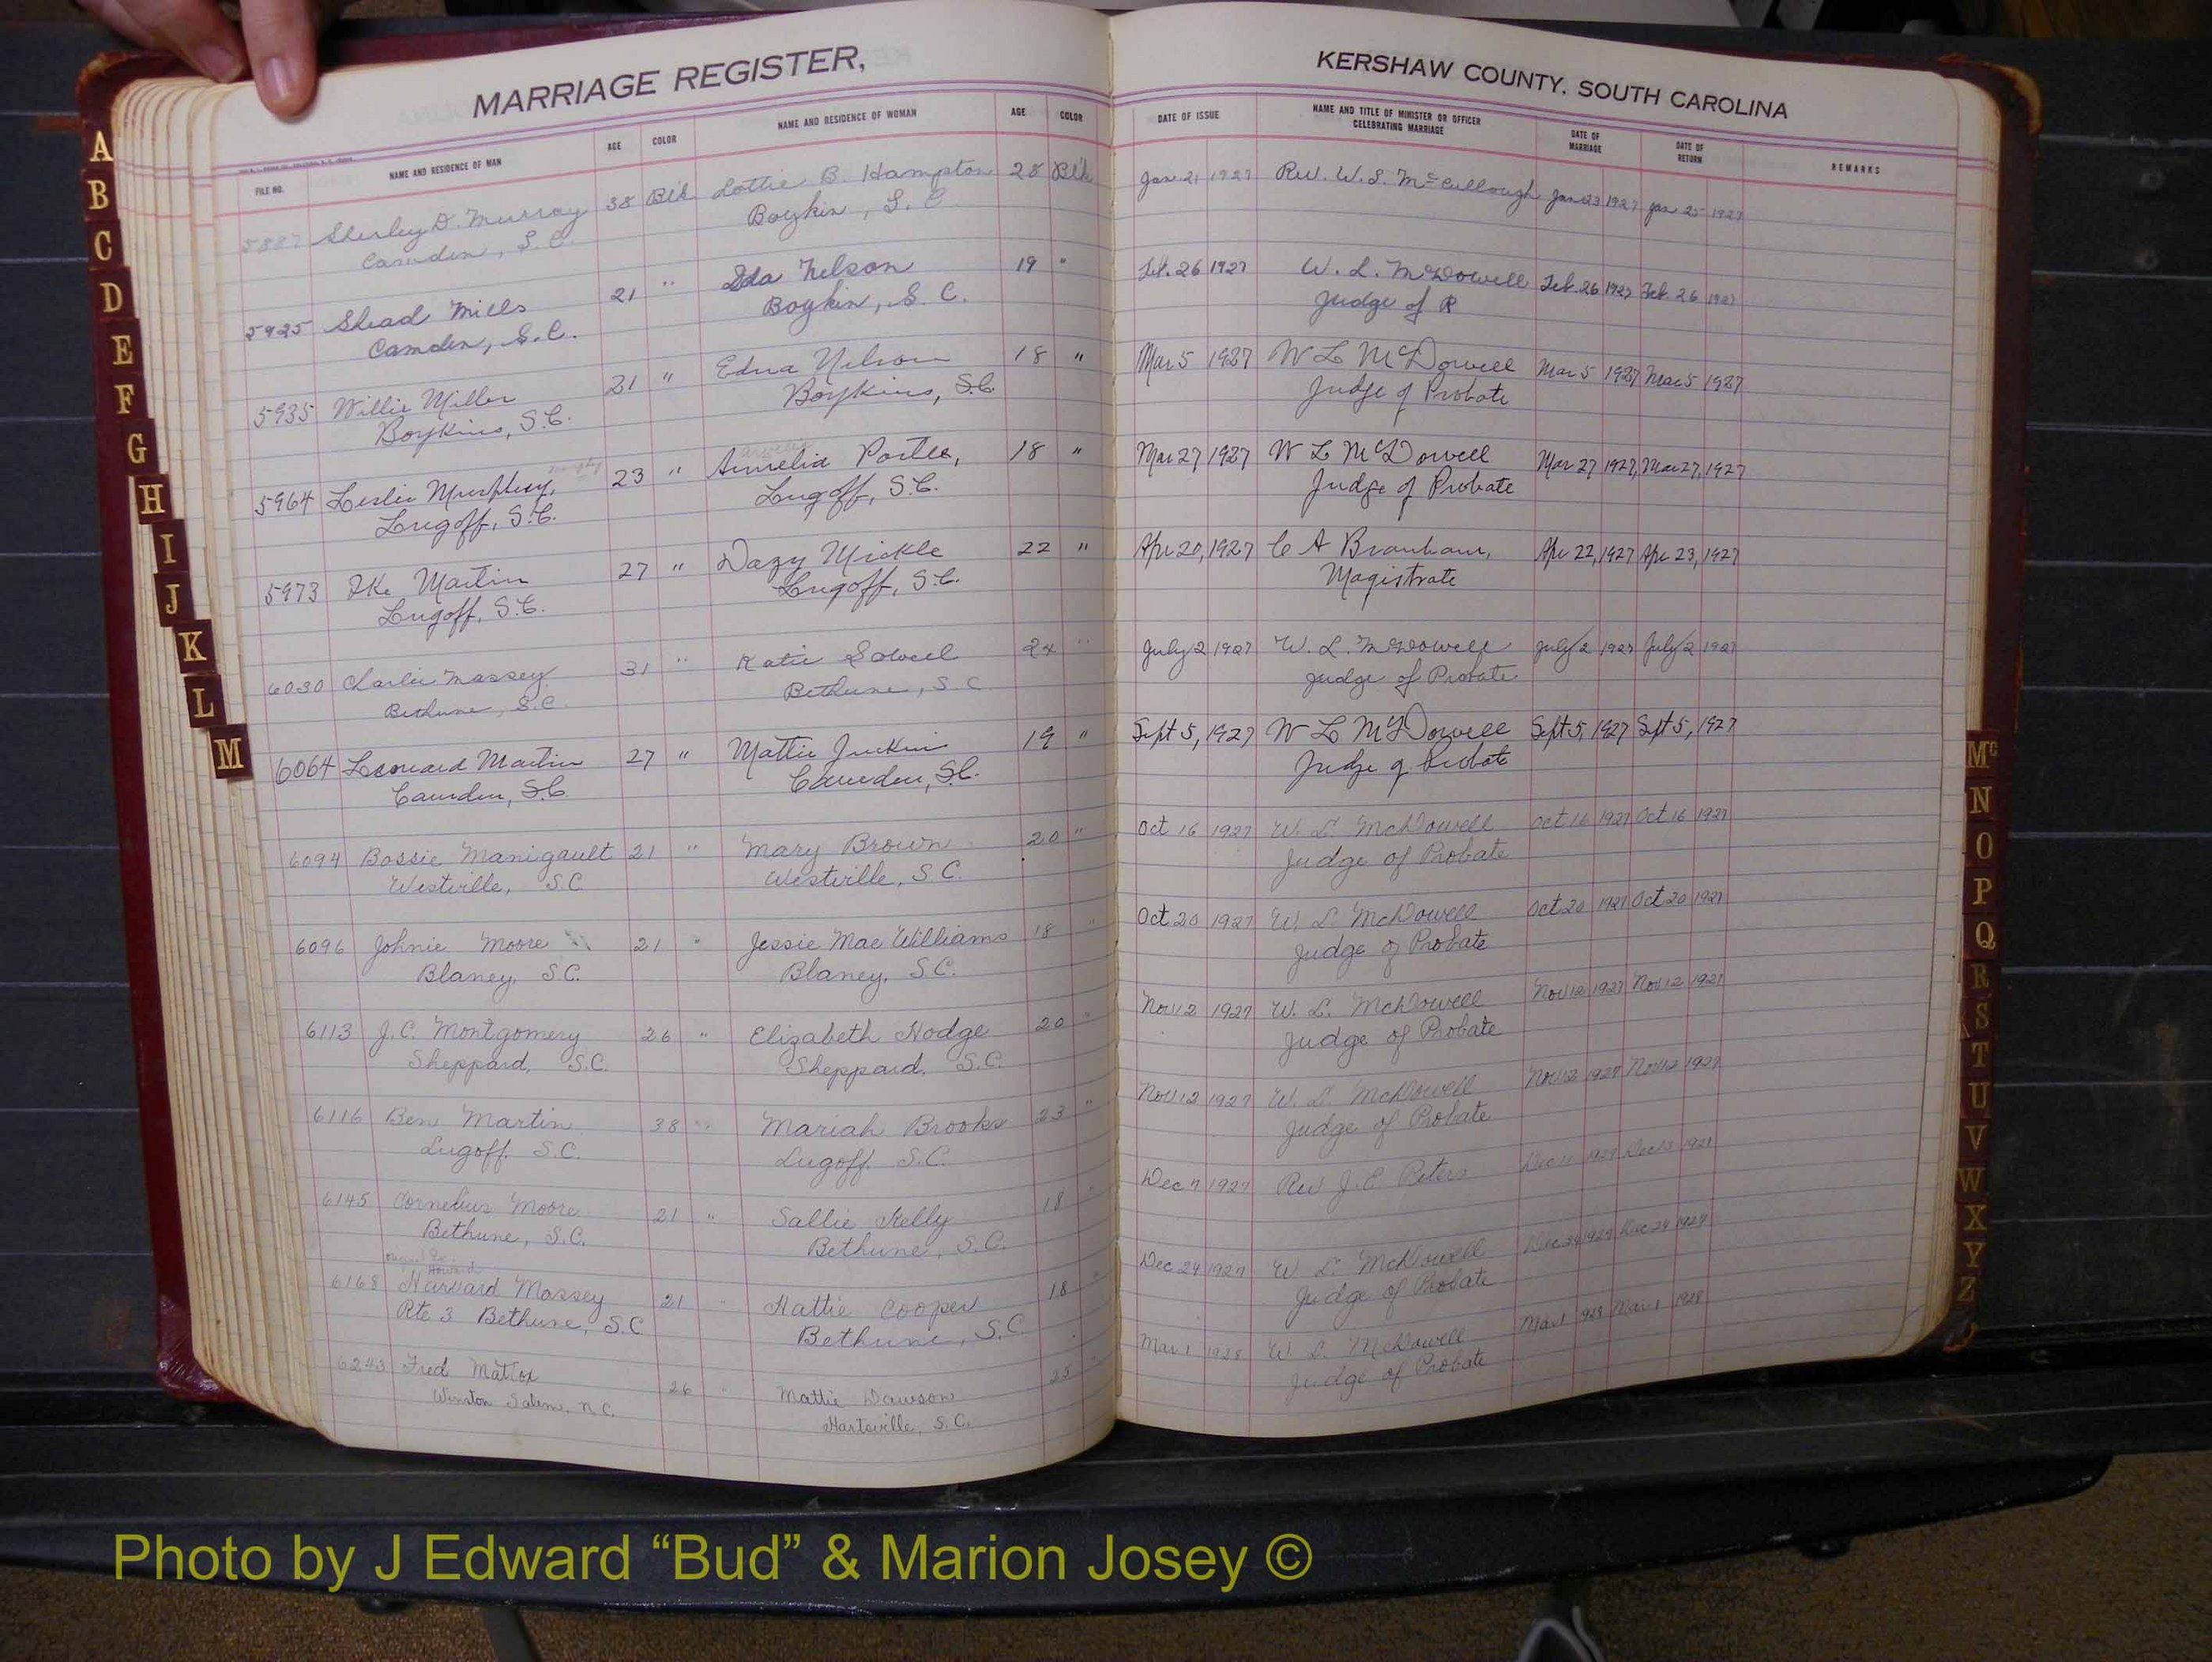 MARRIAGE REGISTER,
FILE NO. NAME AND RESIDENCE OF MAN AGE COLOR NAME AND RESIDENCE OF WOMAN AGE COLOR
5887 Sherley D. Murray 38 Blk Lottie B. Hampton 28 Blk
Camden, S.C. Boykin, S.C.
5925 Shead Mills 21 " Ida Nelson 19 "
Camden, S.C. Boykin, S.C.
5935 Willie Miller 21 " Edna Nelson 18 "
Boykins, S.C. Boykins, S.C.
5964 Leslie Murphy, 23 " Portee, 18 "
Lugoff, S.C. Lugoff, S.C.
5973 Ike Martin 27 " Dazy Mickle 22 "
Lugoff, S.C. Lugoff, S.C.
6030 Charlie Massey 31 " Katie Sowell 24 "
Bethune, S.C. Bethune, S.C.
6064 Leonard Martin 27 " Mattie 19 "
Camden, S.C. Camden, S.C.
6094 Bossie Manigault 21 " Mary Brown 20 "
Westville, S.C. Westville, S.C.
6096 Johnie Moore 21 " Jessie Mae Williams 18 "
Blaney, S.C. Blaney, S.C.
6113 J.C. Montgomery 26 " Elizabeth Hodge 20 "
Sheppard, S.C. Sheppard, S.C.
6116 Ben Martin 38 " Mariah Brooks 23 "
Lugoff, S.C. Lugoff, S.C.
6145 Cornelius Moore 21 " Sallie Kelly 18 "
Bethune, S.C. Bethune, S.C.
Howard
6168 Harvard Massey 21 " Hattie Cooper 18 "
Rte 3 Bethune, S.C. Bethune, S.C.
6243 Fred Mattox 26 " Mattie Dawson 25 "
Winston Salem, N.C. Hartsville, S.C.
KERSHAW COUNTY, SOUTH CAROLINA
DATE OF ISSUE NAME AND TITLE OF MINISTER OR OFFICER CELEBRATING MARRIAGE DATE OF MARRIAGE DATE OF RETURN REMARKS
Jan. 21 1927 Rev. W. S. McCullough Jan 23 1927 Jan 25 1927
Feb. 26 1927 W. L. McDowell Feb. 26 1927 Feb. 26 1927
Judge of P
Mar 5 1927 W L McDowell Mar 5 1927 Mar 5 1927
Judge of Probate
Mar 27 1927 W L McDowell Mar 27 1927, Mar 27, 1927
Judge of Probate
Apr 20, 1927 C A Branham, Apr 22, 1927 Apr 23, 1927
Magistrate
July 2 1927 W. L. McDowell July 2 1927 July 2 1927
Judge of Probate
Sept 5, 1927 W L McDowell Sept 5, 1927 Sept 5, 1927
Judge of Probate
Oct 16 1927 W. L. McDowell Oct 16 1927 Oct 16 1927
Judge of Probate
Oct 20 1927 W. L. McDowell Oct 20 1927 Oct 20 1927
Judge of Probate
Nov 12 1927 W. L. McDowell Nov 12 1927 Nov 12 1927
Judge of Probate
Nov 12 1927 W. L. McDowell Nov 12 1927 Nov 12 1927
Judge of Probate
Dec 7 1927 Rev J. E. Peters Dec 11 1927 Dec 13 1927
Dec 24 1927 W. L. McDowell Dec 24 1927 Dec 24 1927
Judge of Probate
Mar 1 1928 W. L. McDowell Mar 1 1928 Mar 1 1928
Judge of Probate
A
B
C
D
E
F
G
H
I
J
K
L
M
Mc
N
O
P
Q
R
S
T
U
V
W
X
Y
Z
Photo by J Edward “Bud” & Marion Josey ©